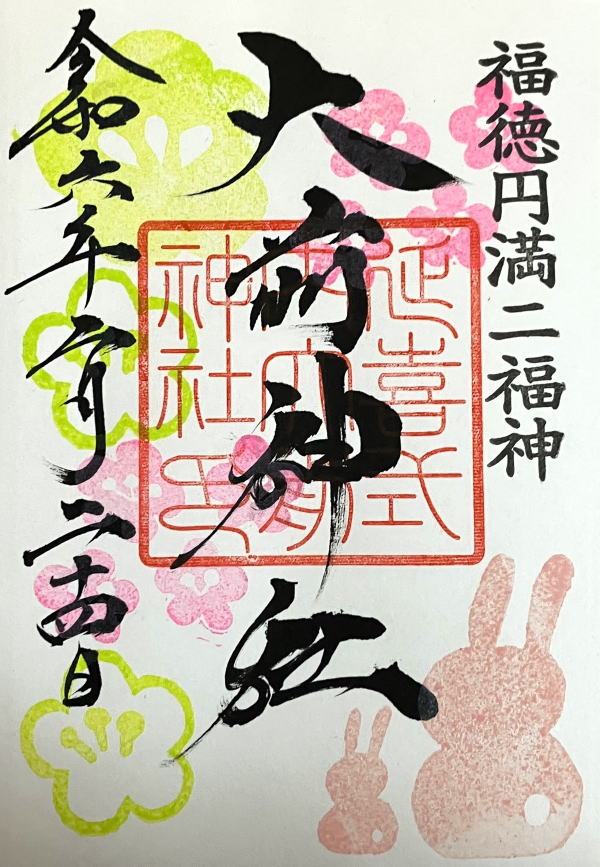 福徳円満二福神
大前神社
延喜式
内大前
神社印
令和六年二月二十四日